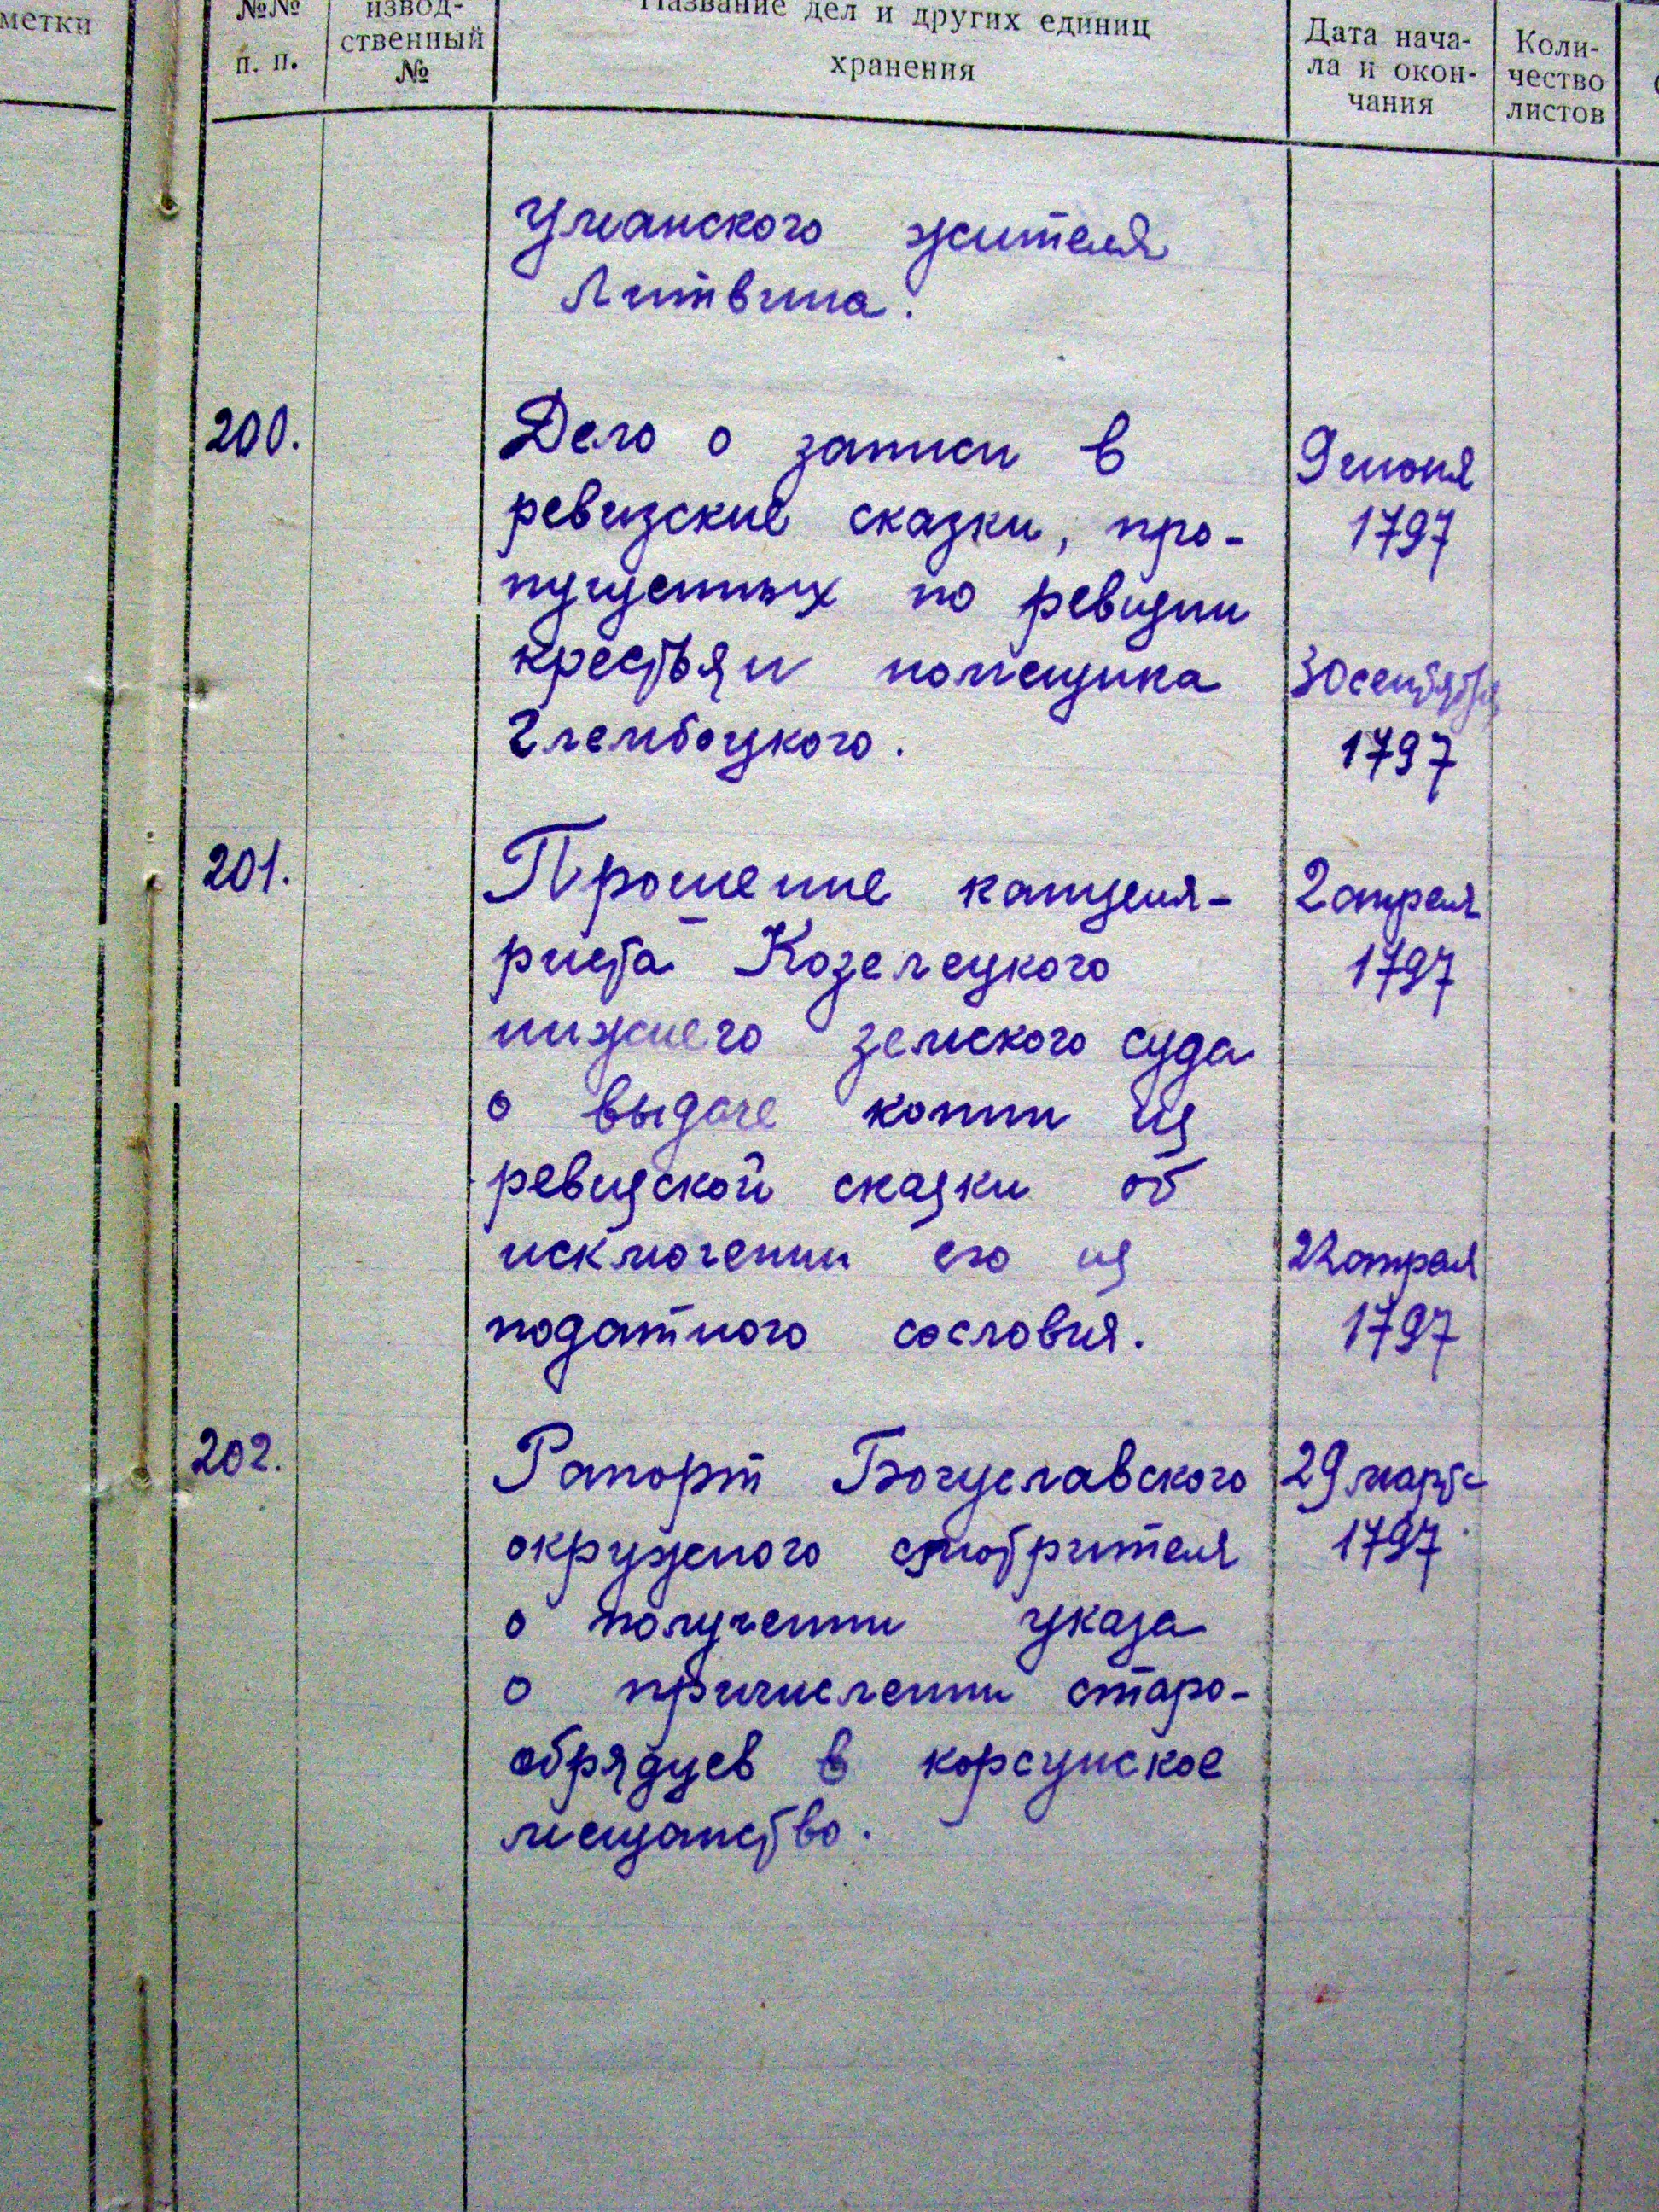 метки
№№
п. п.
извод-
ственный
№
Название дел и других единиц
хранения
Дата нача-
ла и окон-
чания
Коли-
чество
листов
Уманского жителя
Литвина.
200.
Дело о записи в
ревизские сказки, про-
пущенных по ревизии
крестьян помещика
Глембоцкого.
9 июня
1797
30 сентября
1797
201.
Прошение канцеля-
риста Козелецкого
нижнего земского суда
о выдаче копии из
ревизской сказки об
исключении его из
податного сословия.
2 апреля
1797
22 апреля
1797
202.
Рапорт Богуславского
окружного
о получении указа
о причислении старо-
обрядцев в корсунское
мещанство.
29 марта
1797